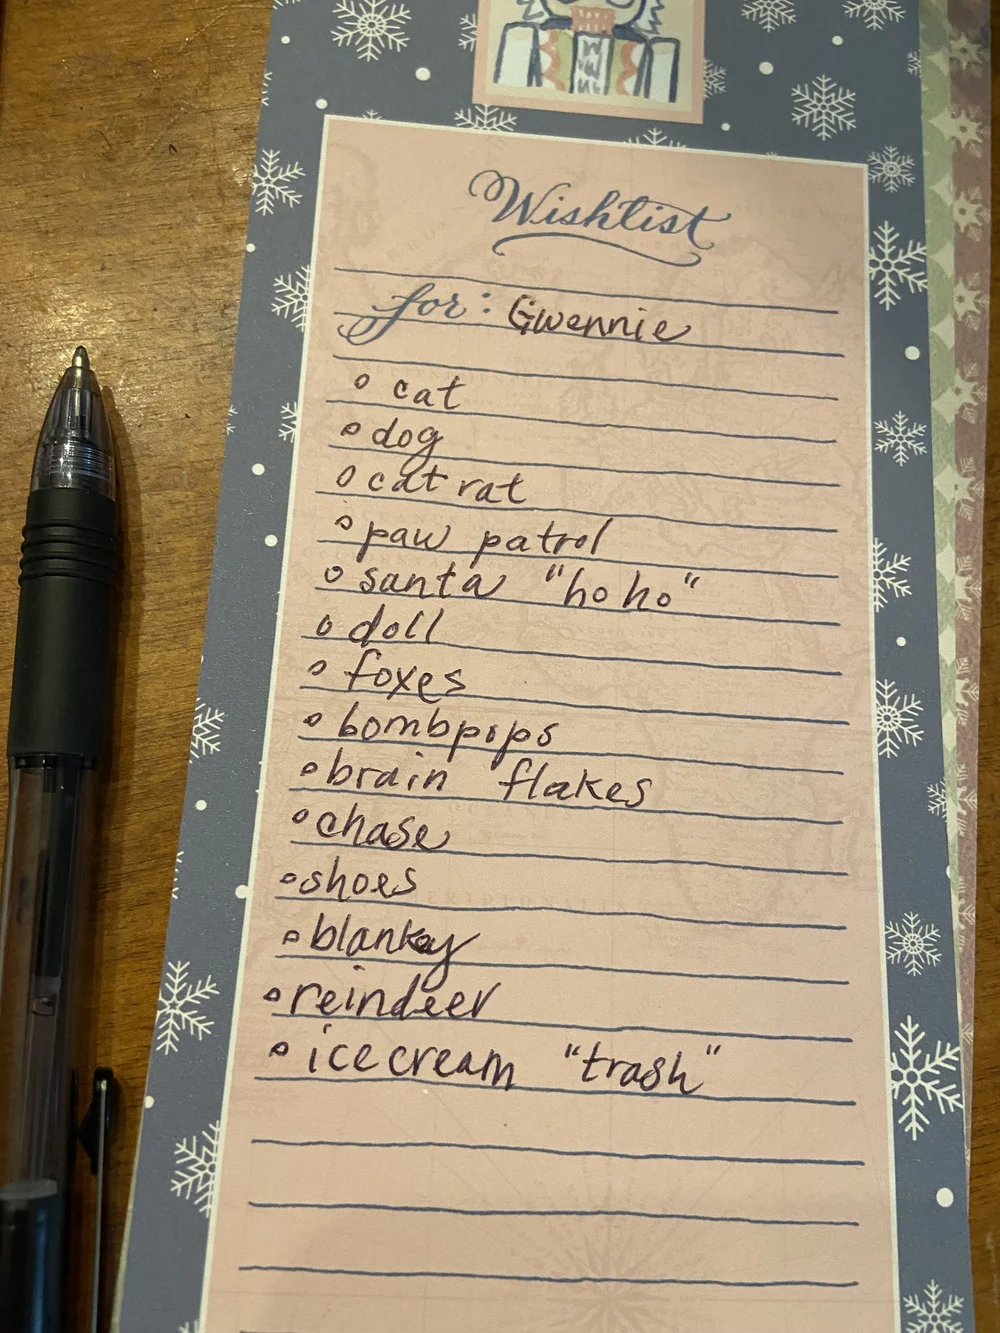 Wishlist
for: Gwennie
cat
dog
cat rat
paw patrol
santa "ho ho"
doll
foxes
bombpops
brain flakes
chase
shoes
blankey
reindeer
ice cream "trash"